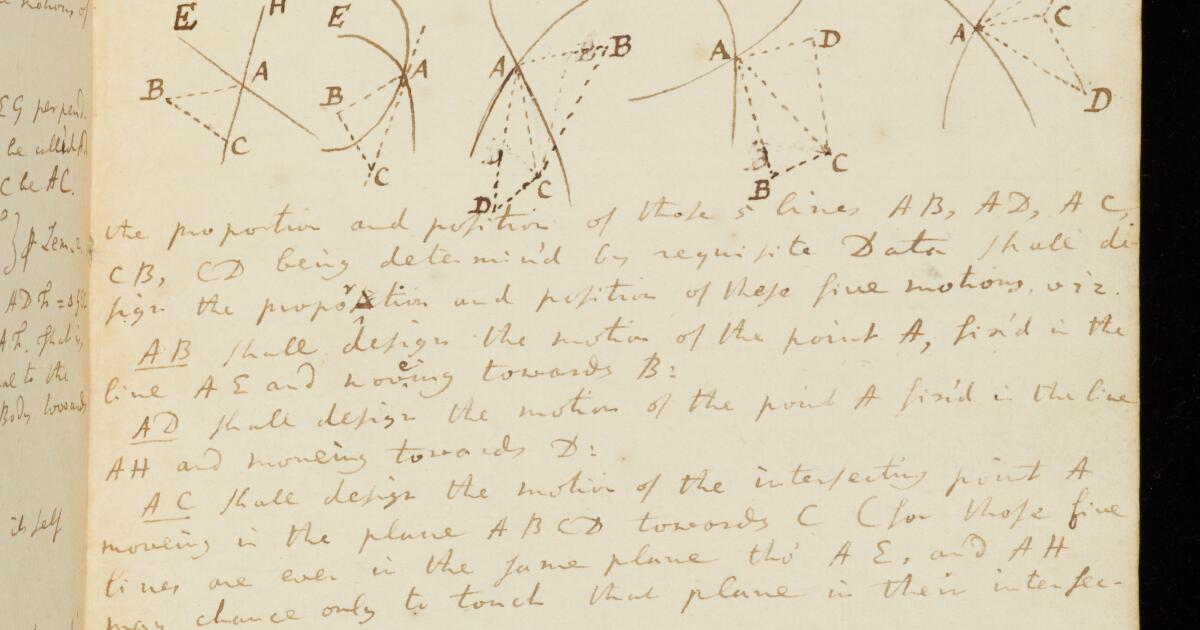 H
E
E
A
B
C
A
B
C
A
B
D
C
A
D
B
C
A
C
D
EG perpend.
be
C be AC.
Lem. 2.
the proportion and position of those 5 lines AB, AD, AC,
CB, CD being determin'd by requisite Data shall de-
sign the proportion and position of these five motions. viz.
AB shall design the motion of the point A, fixed in the
line AE and moveing towards B:
AD shall design the motion of the point A fixed in the line
AH and moveing towards D:
AC shall design the motion of the intersecting point A
moveing in the plane ABCD towards C (for those five
lines are ever in the same plane tho' AE, and AH
may chance only to touch that plane in their intersec-
al to the
Body towards
itself